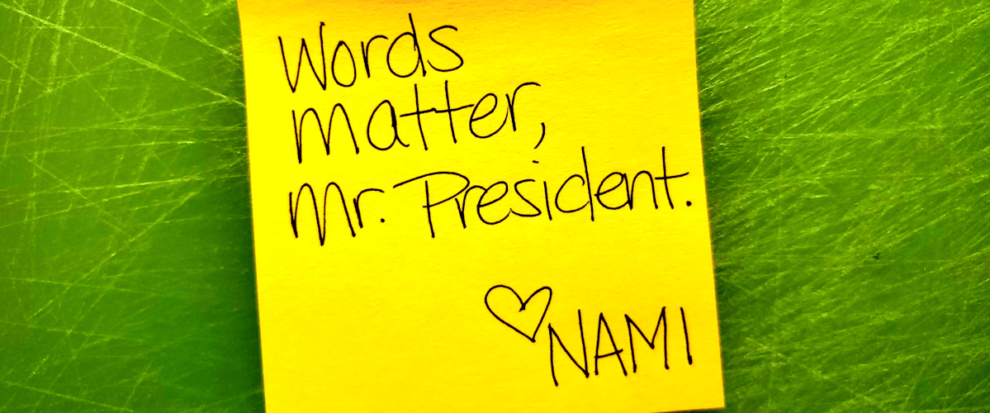 Words
matter,
Mr. President.
♡NAMI